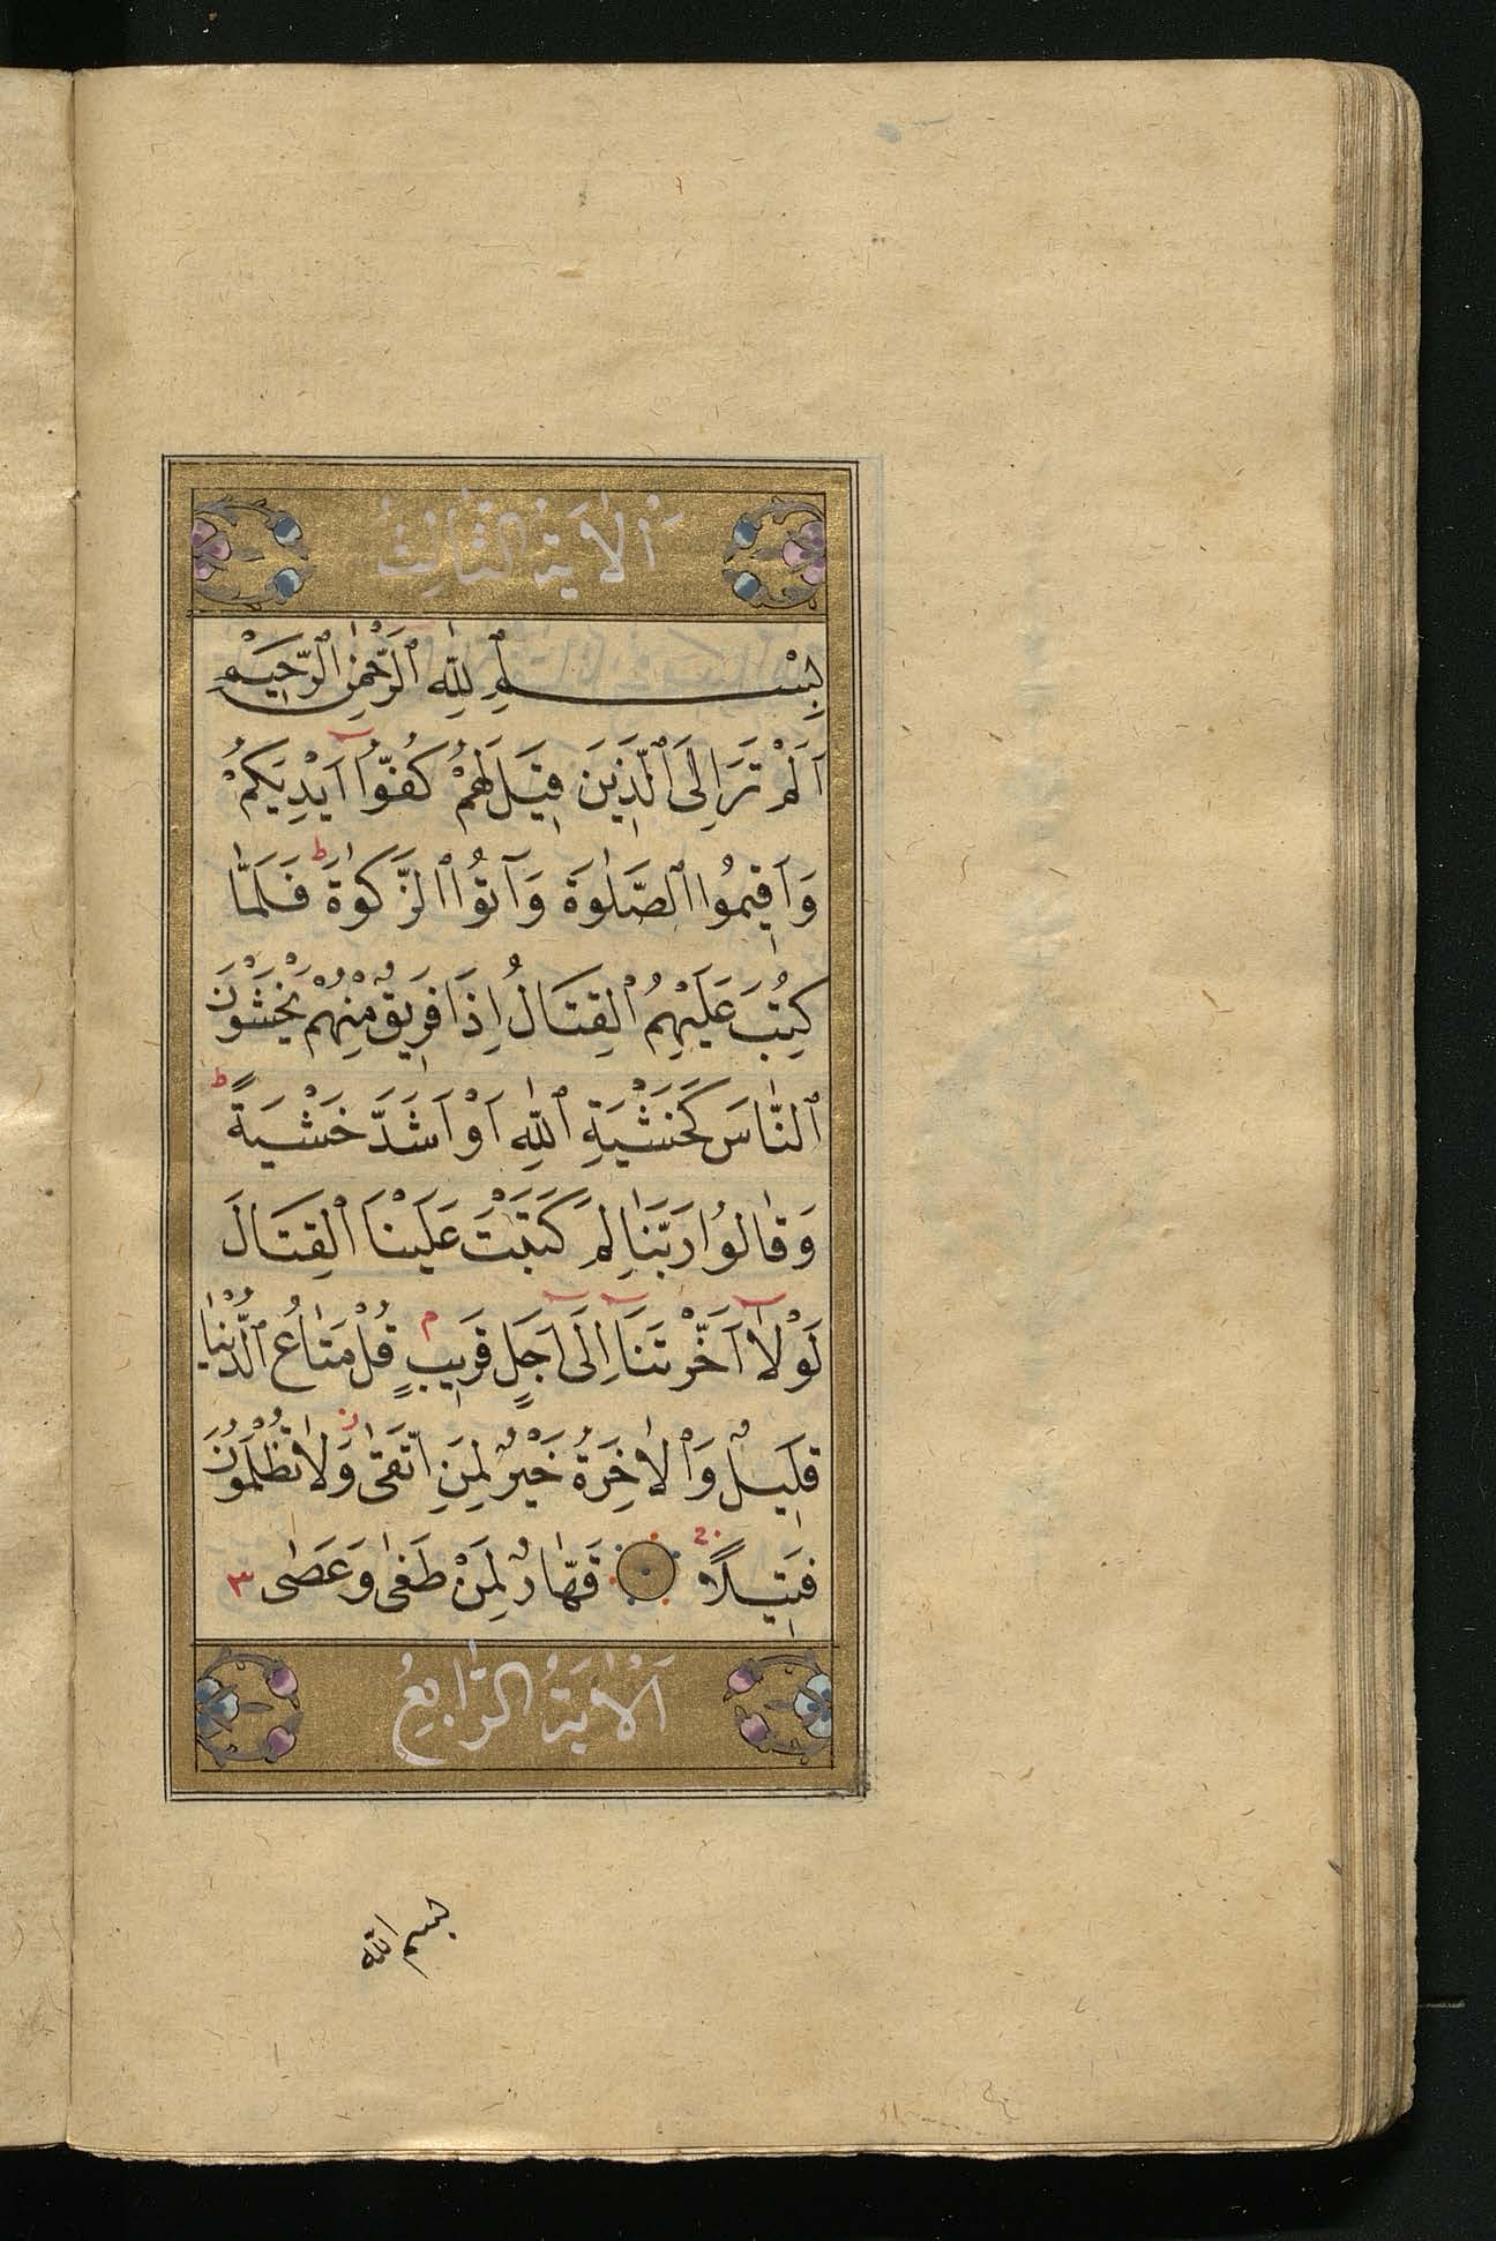 اَلْاٰيَةُ الثَّالِثُ
بِسْمِ ٱللّٰهِ ٱلرَّحْمٰنِ ٱلرَّحِيْمِ
اَلَمْ تَرَ اِلَى ٱلَّذِيْنَ قِيْلَ لَهُمْ كُفُّوْٓا اَيْدِيَكُمْ
وَاَقِيْمُوا ٱلصَّلٰوةَ وَآتُوا ٱلزَّكٰوةَ ط فَلَمَّا
كُتِبَ عَلَيْهِمُ ٱلْقِتَالُ اِذَا فَرِيْقٌ مِنْهُمْ يَخْشَوْنَ
ٱلنَّاسَ كَخَشْيَةِ ٱللّٰهِ اَوْ اَشَدَّ خَشْيَةً ط
وَقَالُوْا رَبَّنَا لِمَ كَتَبْتَ عَلَيْنَا ٱلْقِتَالَ
لَوْلَآ اَخَّرْتَنَآ اِلٰٓى اَجَلٍ قَرِيْبٍ م قُلْ مَتَاعُ ٱلدُّنْيَا
قَلِيْلٌ وَٱلْاٰخِرَةُ خَيْرٌ لِمَنِ اتَّقٰى ز وَلَا تُظْلَمُوْنَ
فَتِيْلًا قَهَّارٌ لِمَنْ طَغٰى وَعَصٰى ٣
اَلْاٰيَةُ الرَّابِعُ
بسم الله